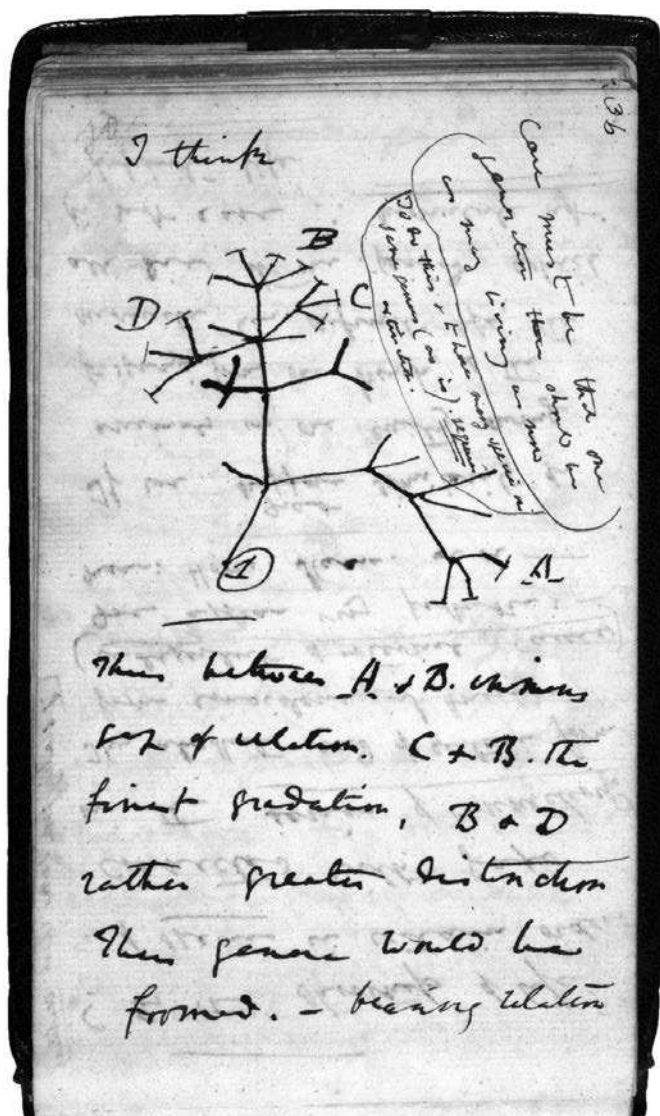 36
I think
Case must be that one
generation then should be
as many living as now
To do this & to have many species in
same genus (as is). requires
extinction.
B
D
C
1
A
Thus between A. & B. immens
gap of relation. C & B. The
finest gradation, B & D
rather greater distinction
Thus genera would be
formed. — bearing relation